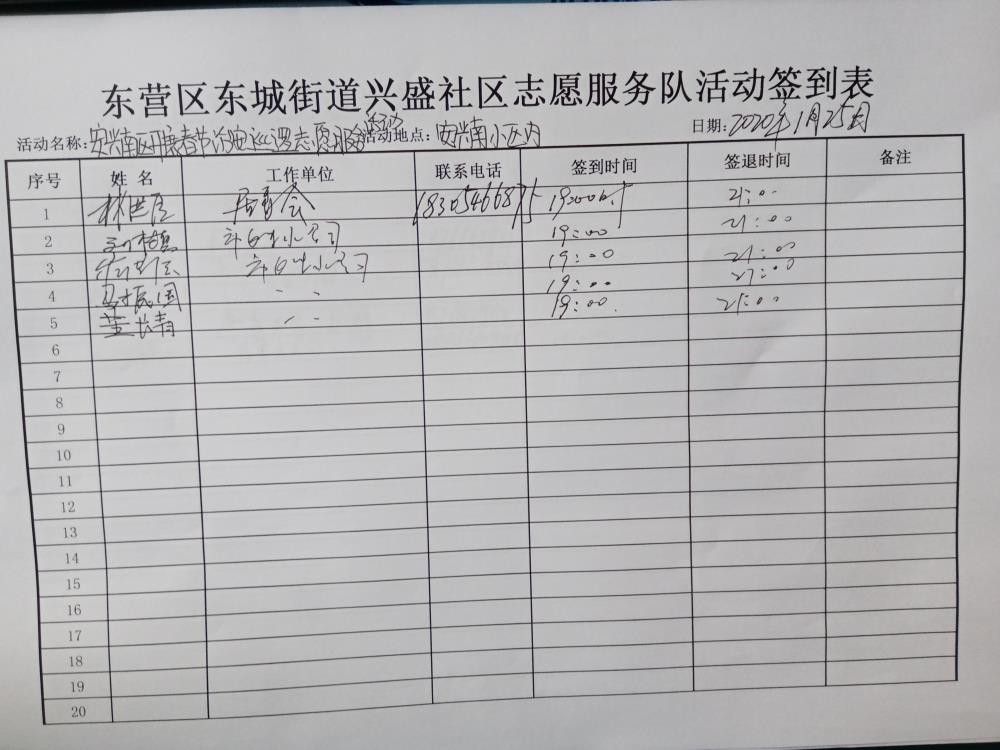 东营区东城街道兴盛社区志愿服务队活动签到表
活动名称:安兴南区开展春节治安巡逻志愿服务活动 活动地点:安兴南小区内 日期:2020年1月25日
序号 姓名 工作单位 联系电话 签到时间 签退时间 备注
1 居委会 18305466875 19:00时 21:00
2 19:00 21:00
3 19:00 21:00
4 19:00 21:00
5 董长青 19:00 21:00
6
7
8
9
10
11
12
13
14
15
16
17
18
19
20